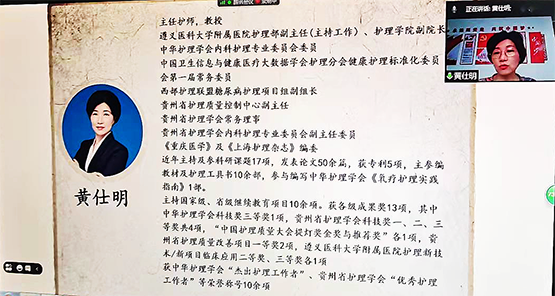 主任护师，教授
遵义医科大学附属医院护理部副主任(主持工作)、护理学院副院长
中华护理学会内科护理专业委员会委员
中国卫生信息与健康医疗大数据学会护理分会健康护理标准化委员
会第一届常务委员
西部护理联盟糖尿病护理项目组副组长
贵州省护理质量控制中心副主任
贵州省护理学会常务理事
贵州省护理学会内科护理专业委员会副主任委员
《重庆医学》及《上海护理杂志》编委
近年主持及参科研课题17项，发表论文50余篇，获专利5项，主参编
教材及护理工具书10余部，参与编写中华护理学会《乳疗护理实践
指南》1部。
主持国家级、省级继续教育项目10余项。获各级成果奖13项，其中
中华护理学会科技奖三等奖1项，贵州省护理学会科技奖一、二、三
等奖共4项，“中国护理质量大会提灯奖金奖与推荐奖”各1项，贵
州省护理质量改善项目一等奖2项，遵义医科大学附属医院护理新技
术/新项目临床应用二等奖、三等奖各1项
获中华护理学会“杰出护理工作者”、贵州省护理学会“优秀护理
工作者”等荣誉称号10余项
黄仕明
正在讲话: 黄仕明;
黄仕明